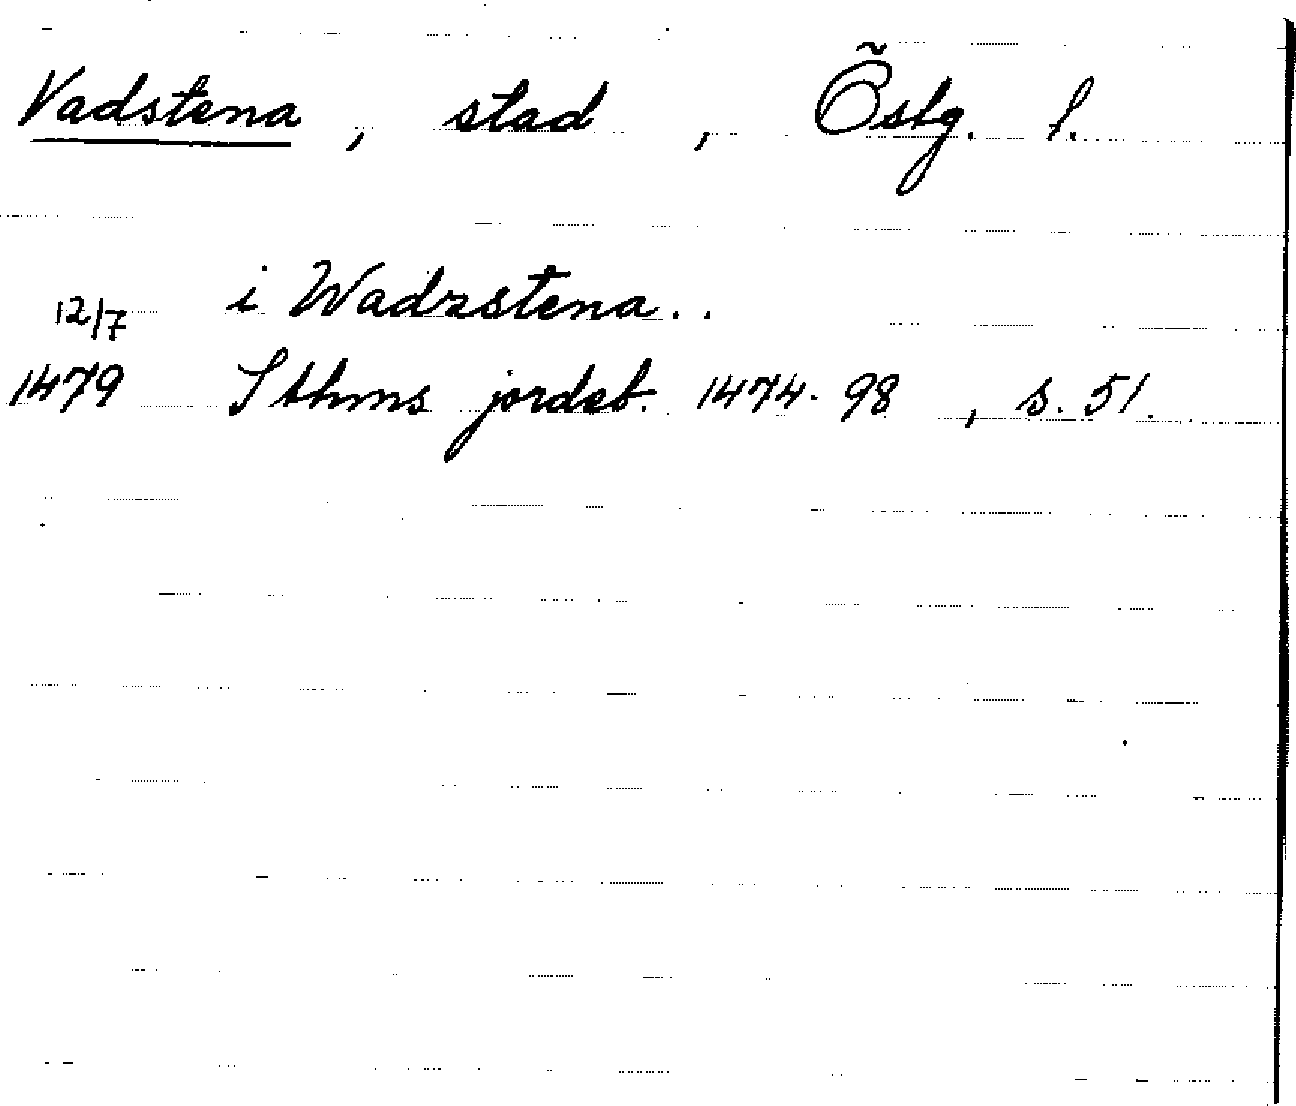 Vadstena, stad, Östg. l.
12/7 i Wadzstena..
1479 Sthms jordeb. 1474-98, s. 51.